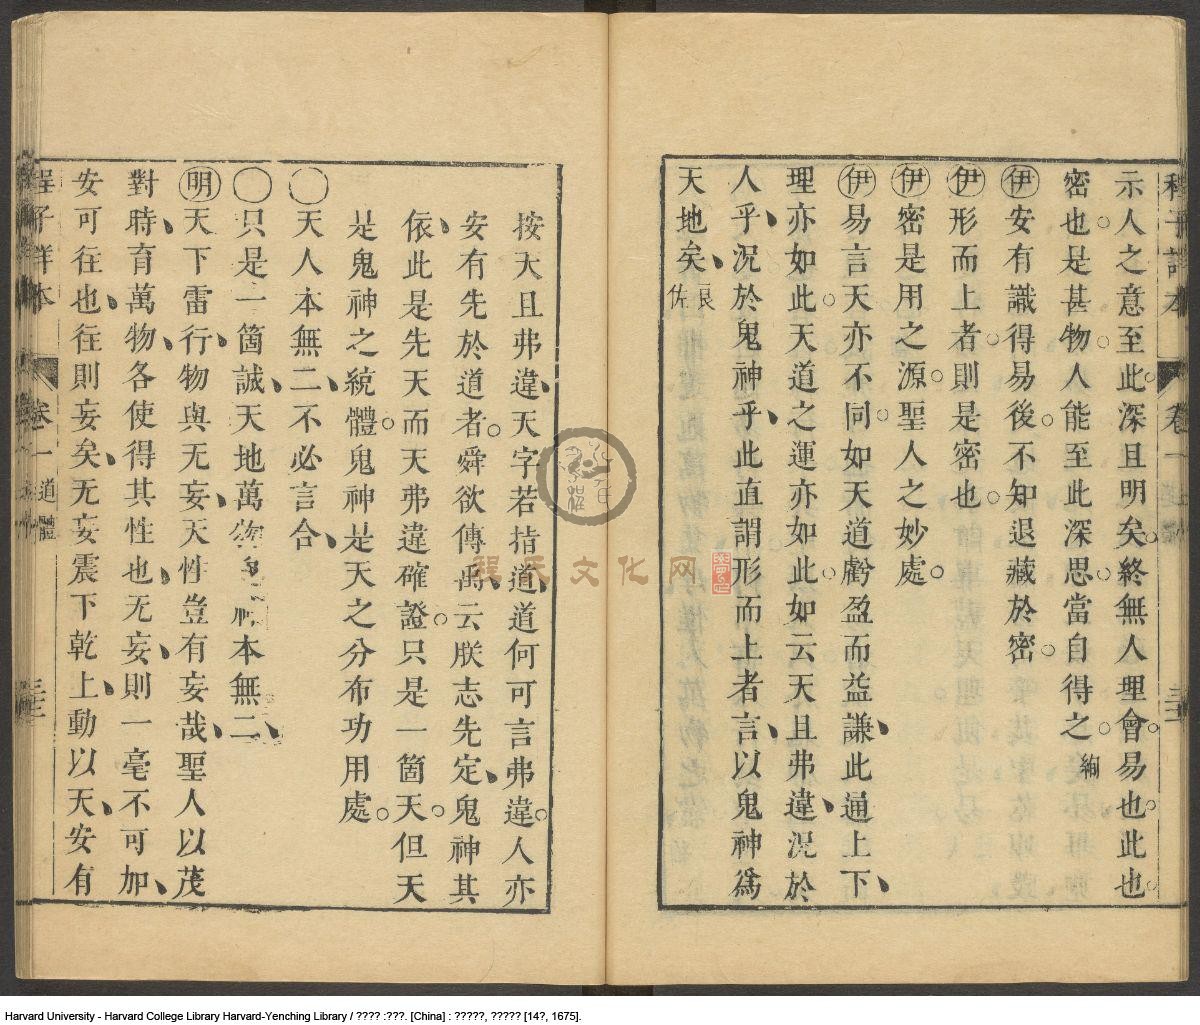 示人之意至此深且明矣終無人理會易也此也
密也是甚物人能至此深思當自得之 絢
伊 安有識得易後不知退藏於密
伊 形而上者則是密也
伊 密是用之源聖人之妙處
伊 易言天亦不同如天道虧盈而益謙此通上下
理亦如此天道之運亦如此如云天且弗違況於
人乎況於鬼神乎此直謂形而上者言以鬼神為
天地矣 良佐
按天且弗違天字若指道道何可言弗違人亦
安有先於道者舜欲傳禹云朕志先定鬼神其
依此是先天而天弗違確證只是一箇天但天
是鬼神之統體鬼神是天之分布功用處
〇天人本無二不必言合
〇只是一箇誠天地萬物 本無二
明 天下雷行物與无妄天性豈有妄哉聖人以茂
對時育萬物各使得其性也无妄則一毫不可加
安可往也往則妄矣无妄震下乾上動以天安有
程子詳本 卷一 道體
程氏文化网
Harvard University - Harvard College Library Harvard-Yenching Library / ???? :???. [China] : ?????, ????? [14?, 1675].